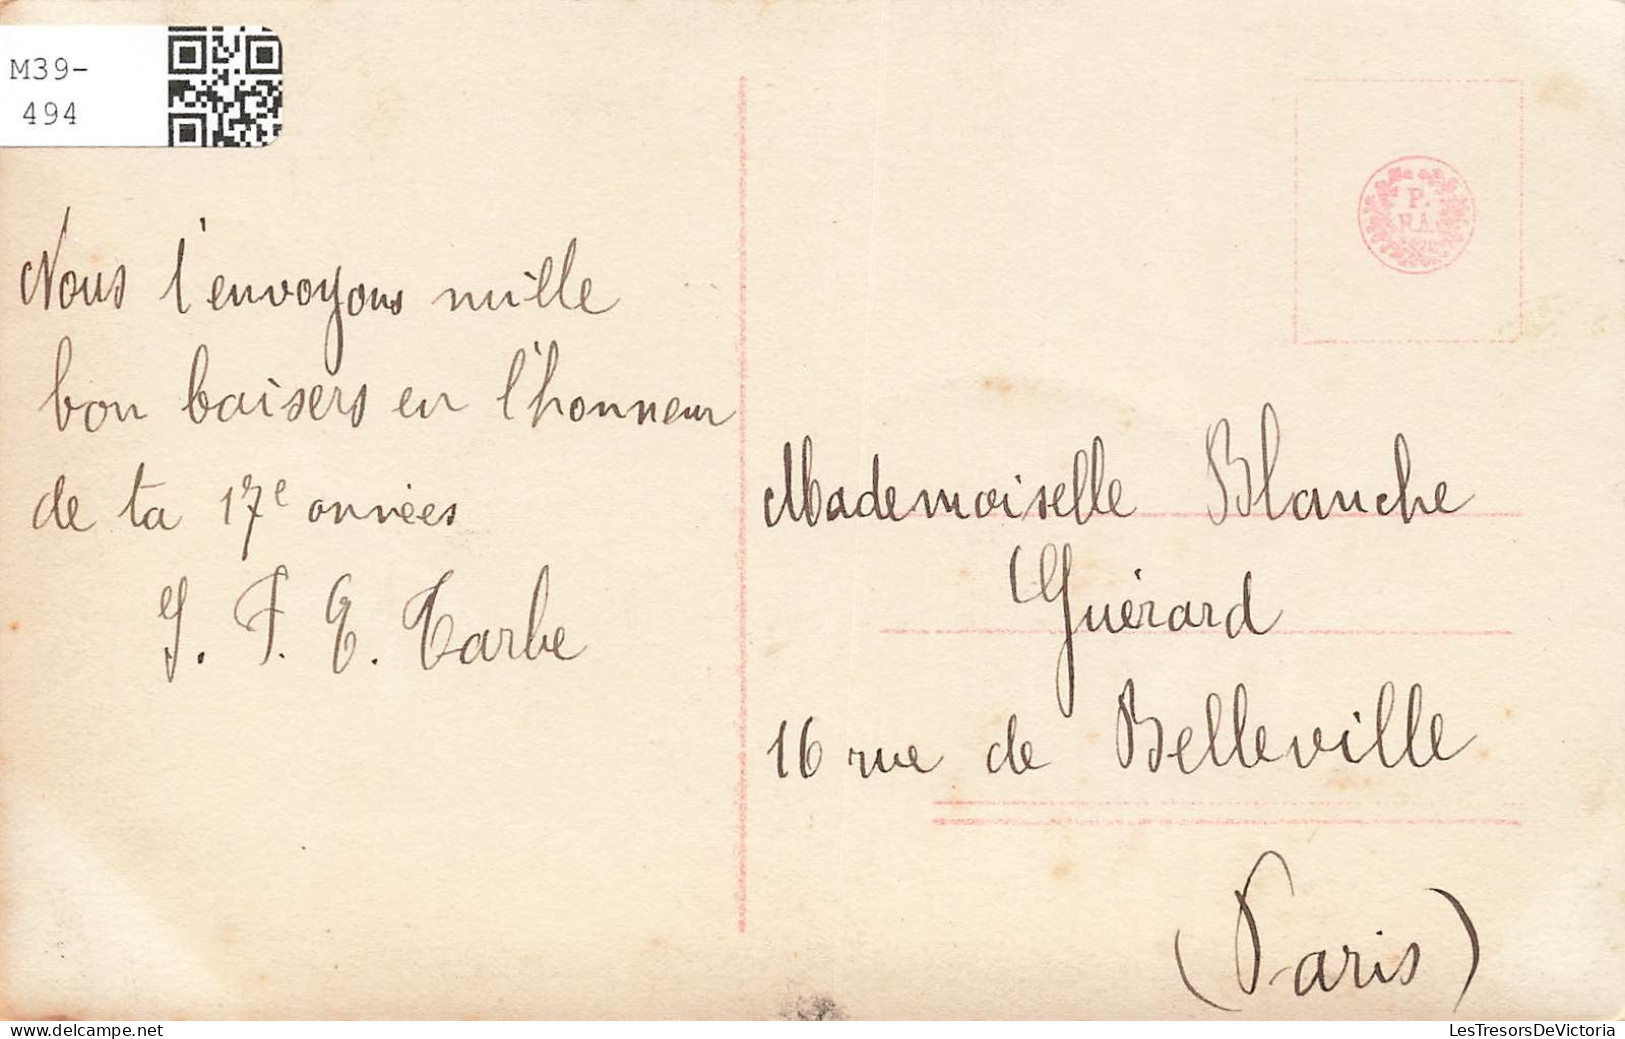 M39-
494
Nous t'envoyons mille
bon baisers en l'honneur
de ta 17e années
J. F. E. Tarbe
P.
R.A.
Mademoiselle Blanche
Guérard
16 rue de Belleville
(Paris)
LesTresorsDeVictoria.com